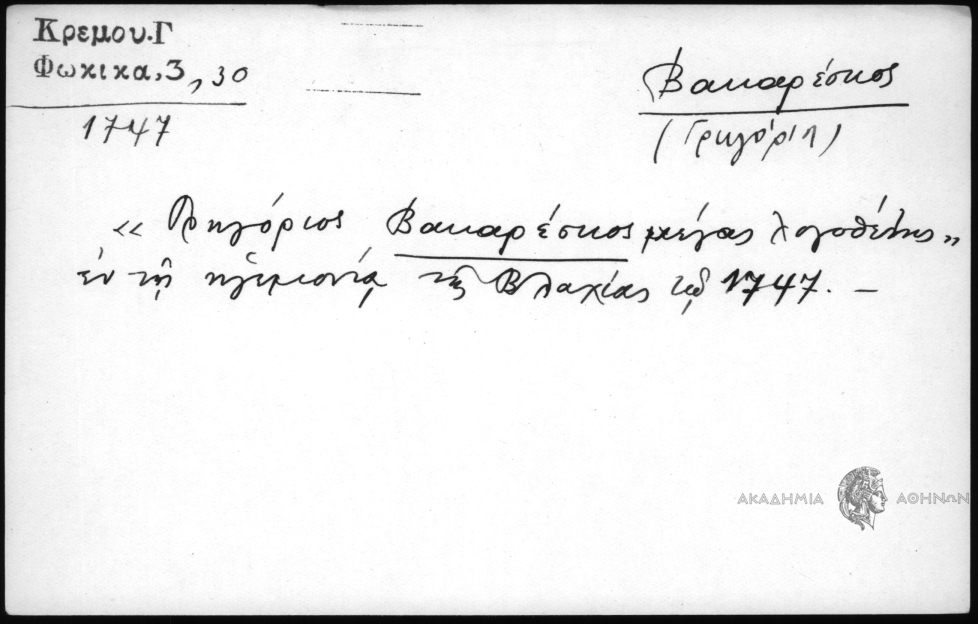 Κρεμου.Γ
Φωκικα,3,30
1747
Βακαρέσκος
(Γρηγόριος)
« Γρηγόριος Βακαρέσκος μέγας λογοθέτης »
ἐν τῇ ἡγεμονίᾳ τῆς Βλαχίας τῷ 1747. –
ΑΚΑΔΗΜΙΑ ΑΘΗΝΩΝ